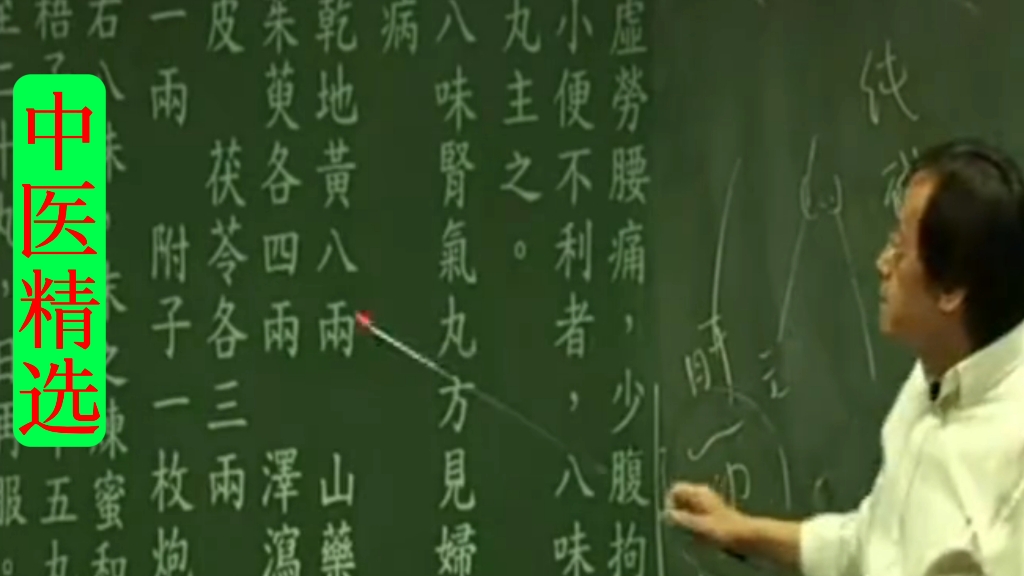 中医精选
虛勞腰痛，少腹拘
小便不利者，八味
丸主之。
八味腎氣丸方見婦
病
乾地黃八兩 山藥
茱萸各四兩 澤瀉
皮 茯苓各三兩
一兩 附子一枚炮
右八味 末之煉蜜和
梧子 五丸
日再服。
純
肝